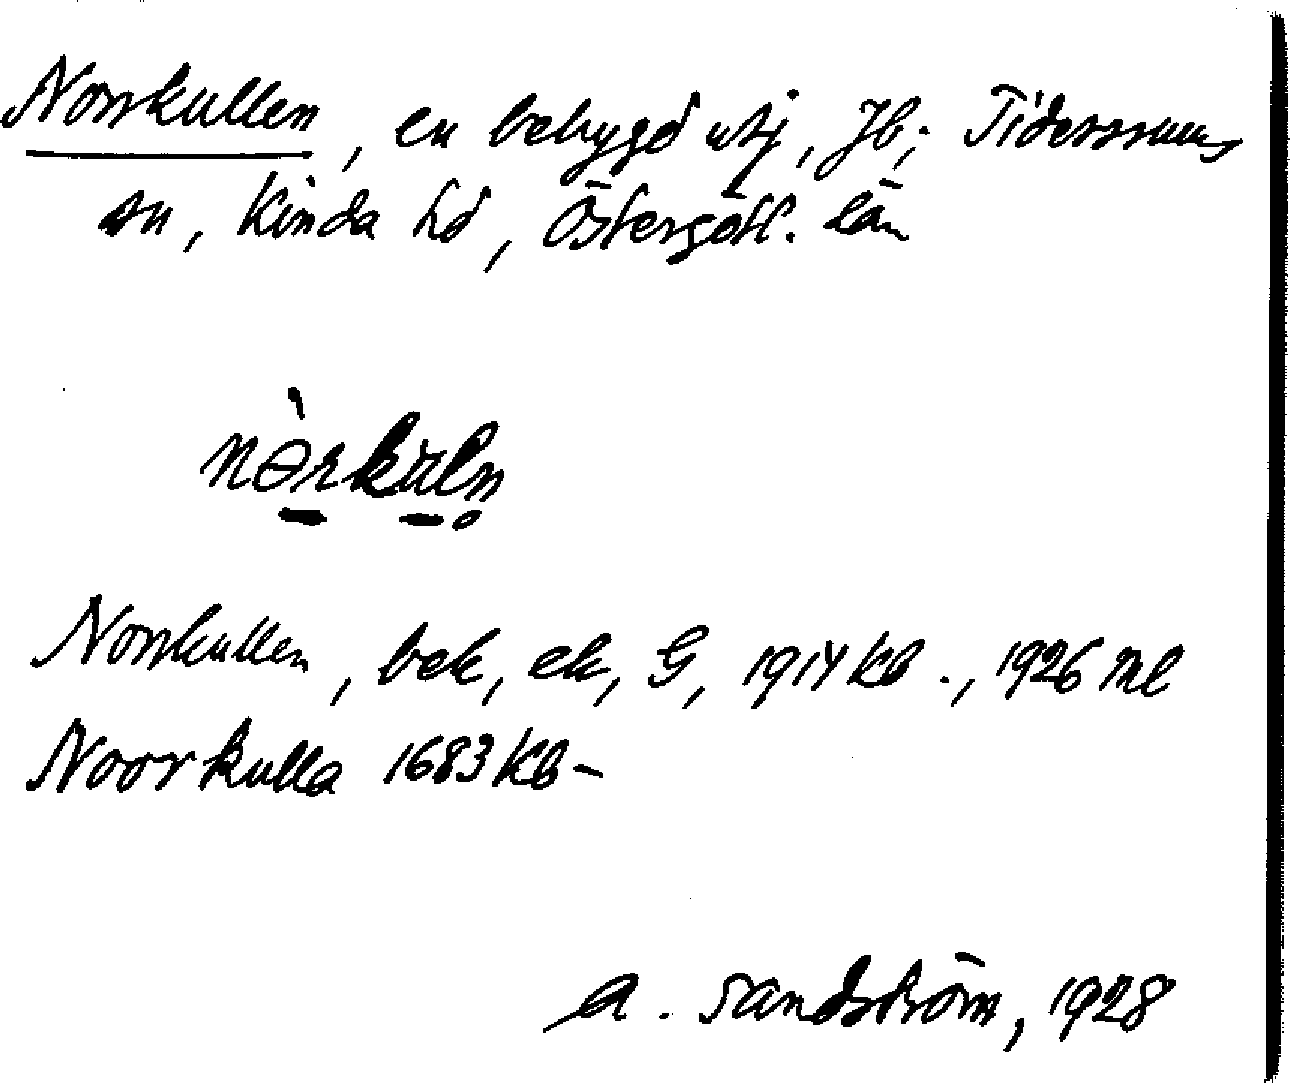 Norrkullen, en bebygd utj, Jb; Tidersrums
sn, Kinda hd, Östergötl. län
nə̀rkuln̥
Norrkullen, bek, ek, G, 1914 kb., 1926 ml
Noorkulla 1683 Kb –
A. Sandström, 1928